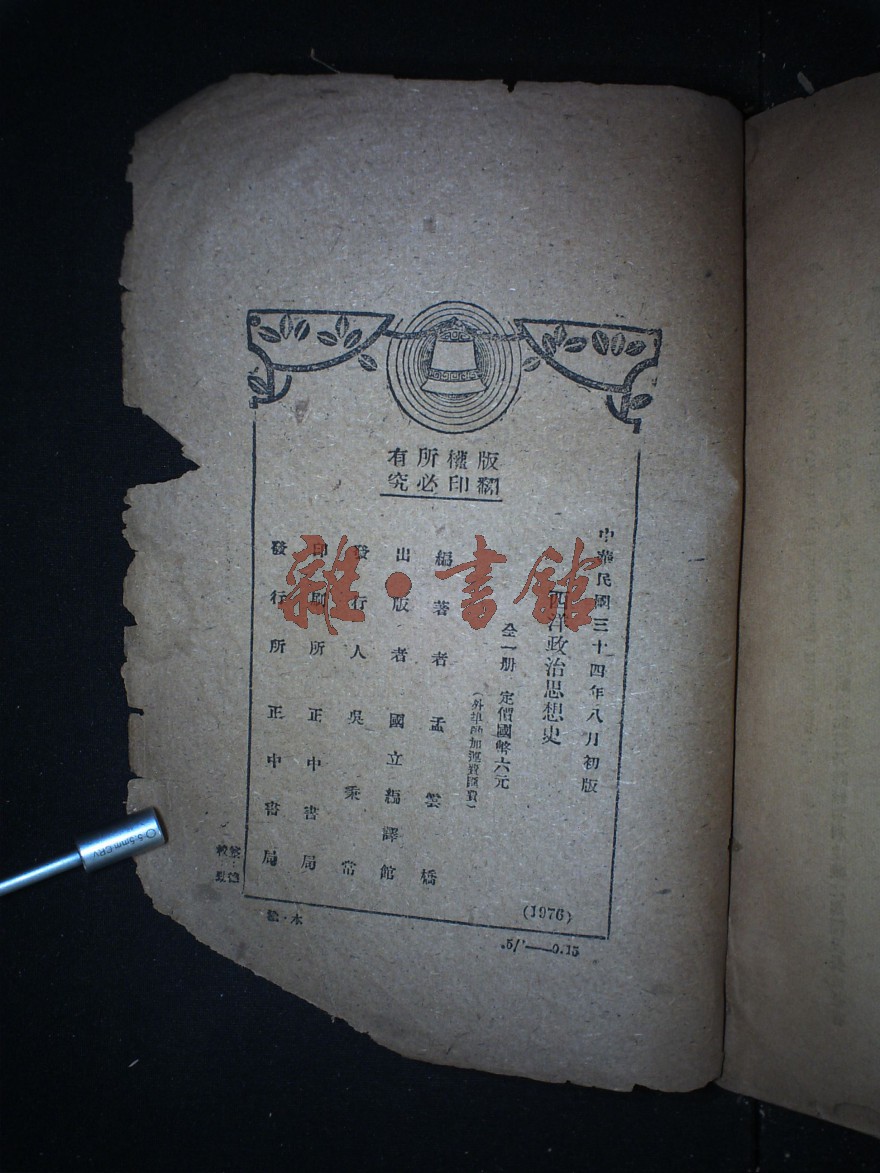 版權所有
翻印必究
中華民國三十四年八月初版
西洋政治思想史
全一册 定價國幣六元
(外埠酌加運費匯費)
編著者 孟雲橋
出版者 國立編譯館
發行人 吳秉常
印刷所 正中書局
發行所 正中書局
(1976)
松·木
雜·書館
5.5mm CRV